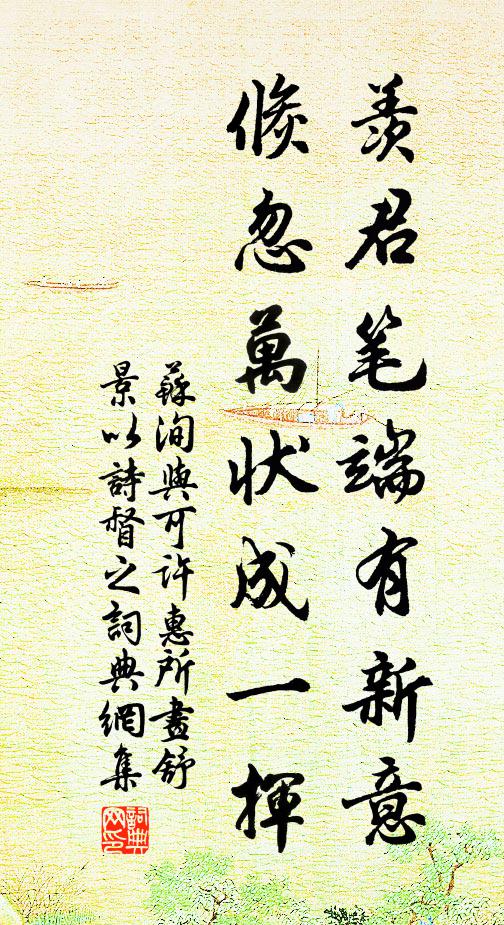 羨君笔端有新意
倏忽萬状成一揮
蘇洵與可許惠所畫舒
景以詩督之詞典網集
詞典
网印